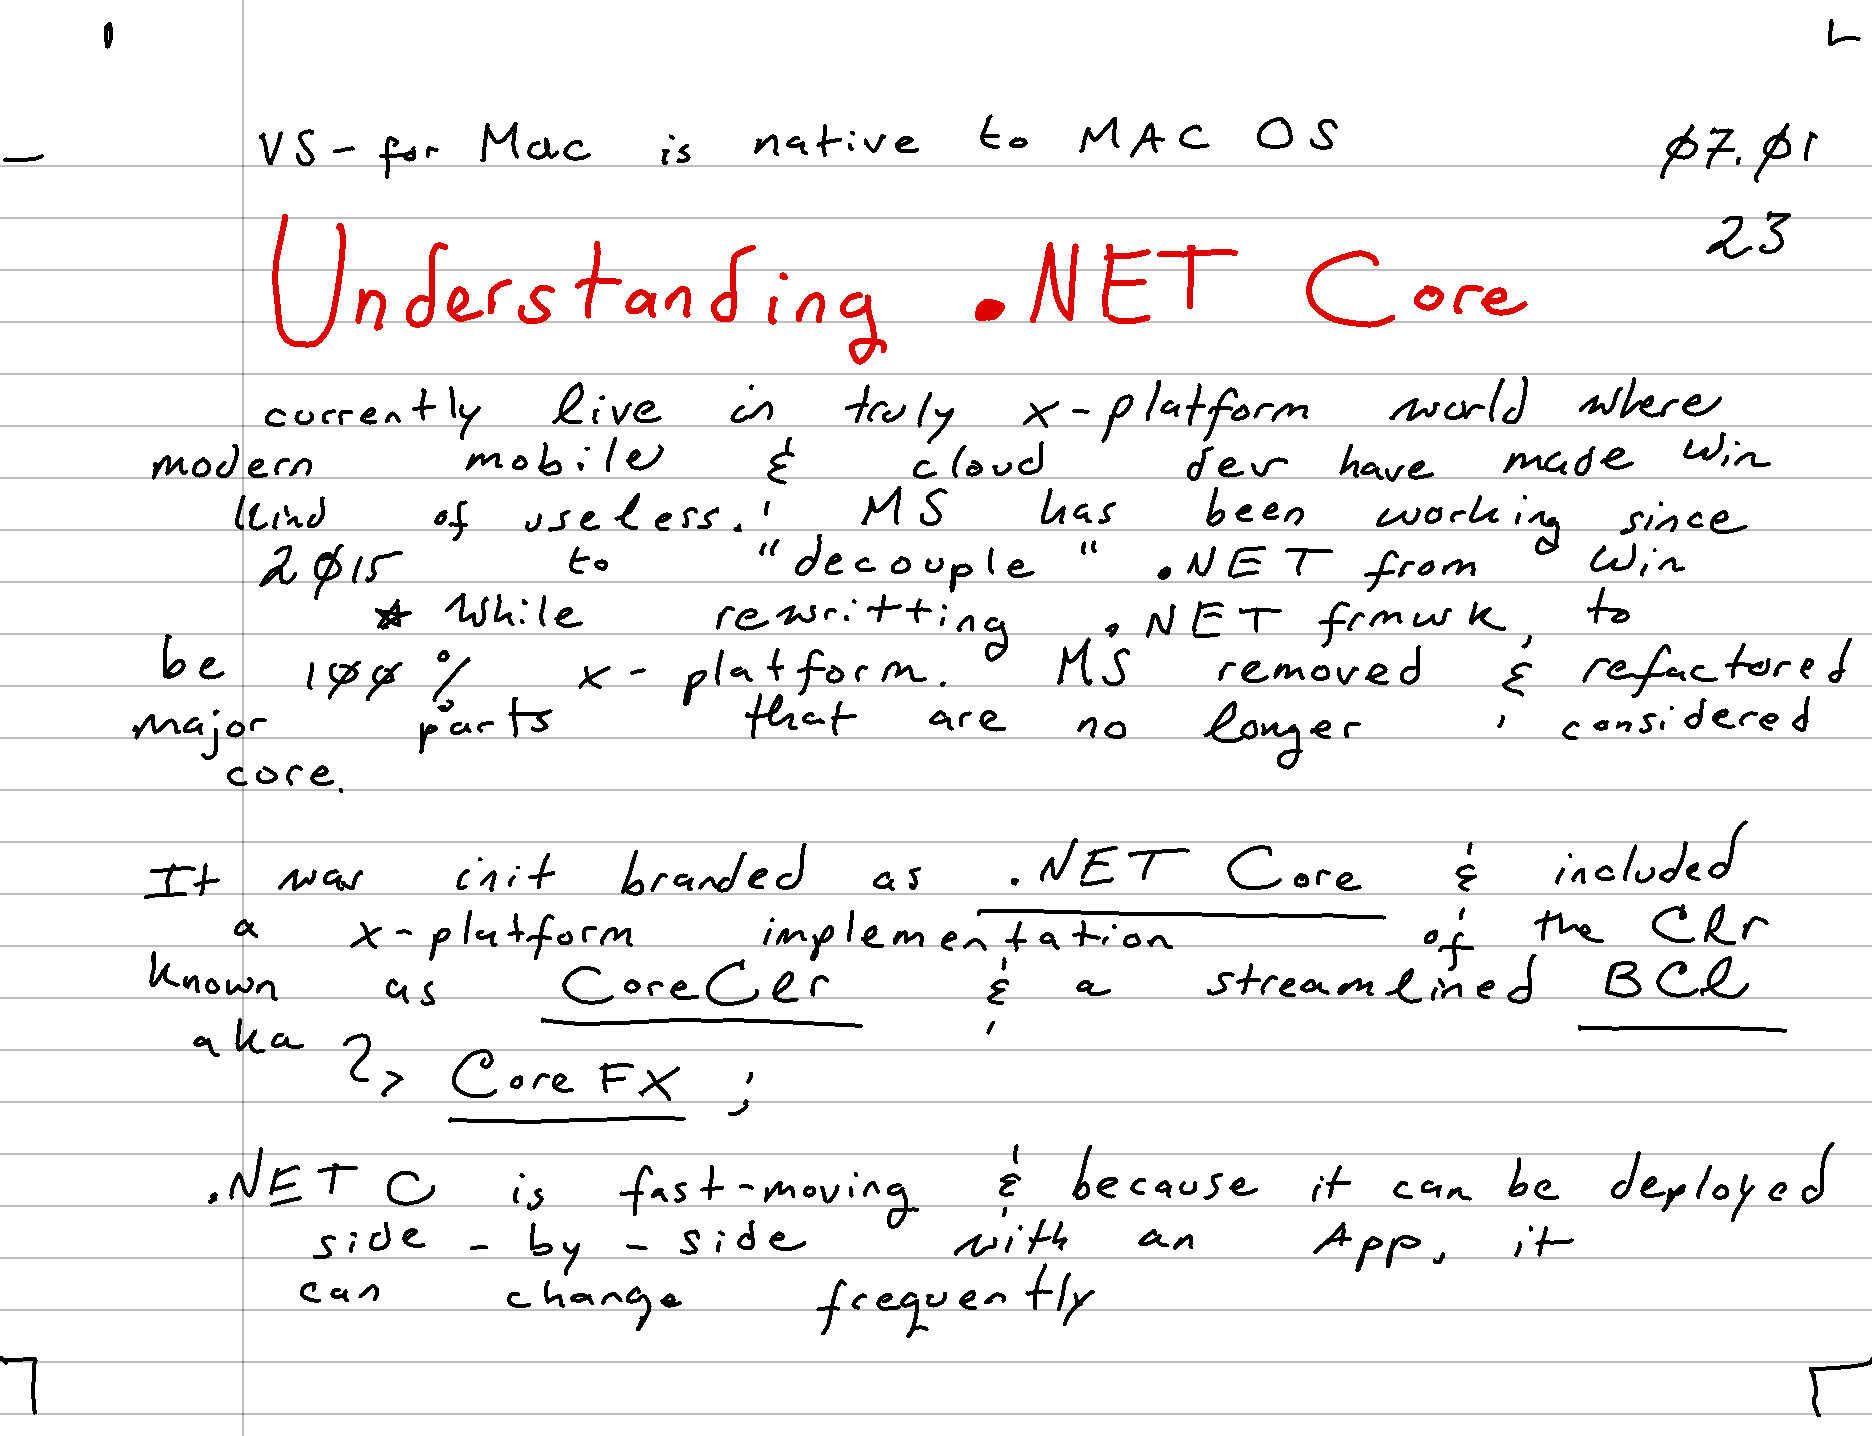 VS - for Mac is native to MAC OS 07.01
23
Understanding .NET Core
currently live in truly x-platform world where
modern mobile & cloud dev have made Win
kind of useless. MS has been working since
2015 to "decouple" .NET from Win
* While rewritting .NET frmwk, to
be 100% x-platform. MS removed & refactored
major parts that are no longer considered
core.
It was init branded as .NET Core & included
a x-platform implementation of the Clr
known as CoreClr & a streamlined BCl
aka -> CoreFX ;
.NET C is fast-moving & because it can be deployed
side-by-side with an App, it
can change frequently